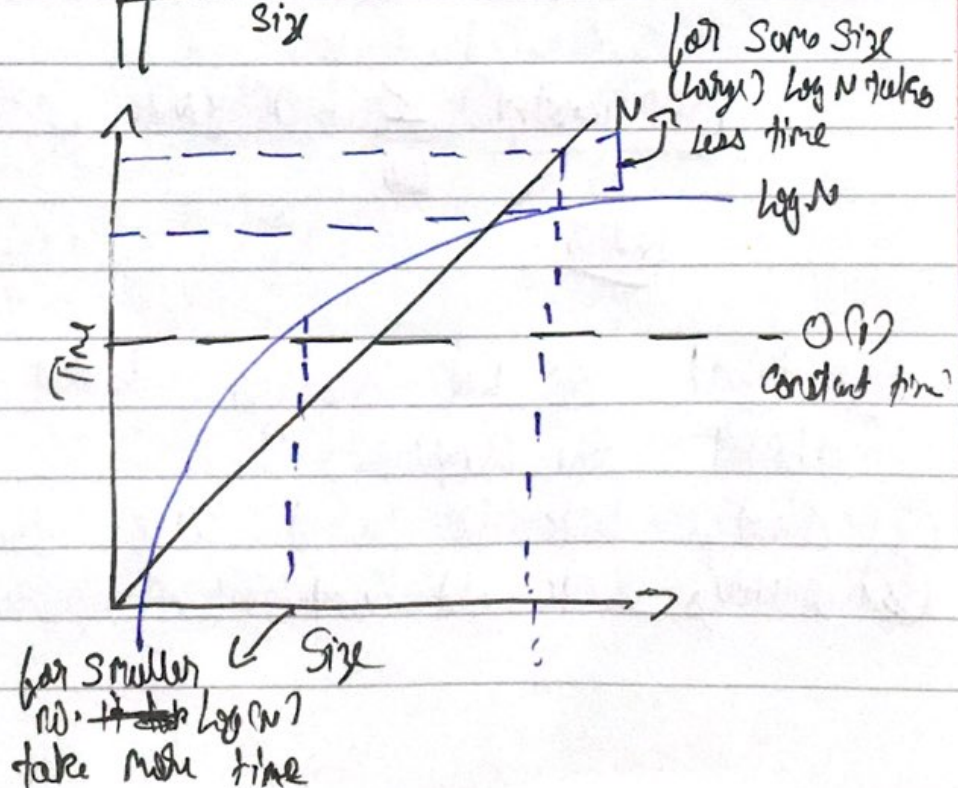 Size
for Same Size
(Large) Log N takes
less time
N
Log N
O(1)
constant time
Time
Size
for smaller
no. Log(N)
take more time